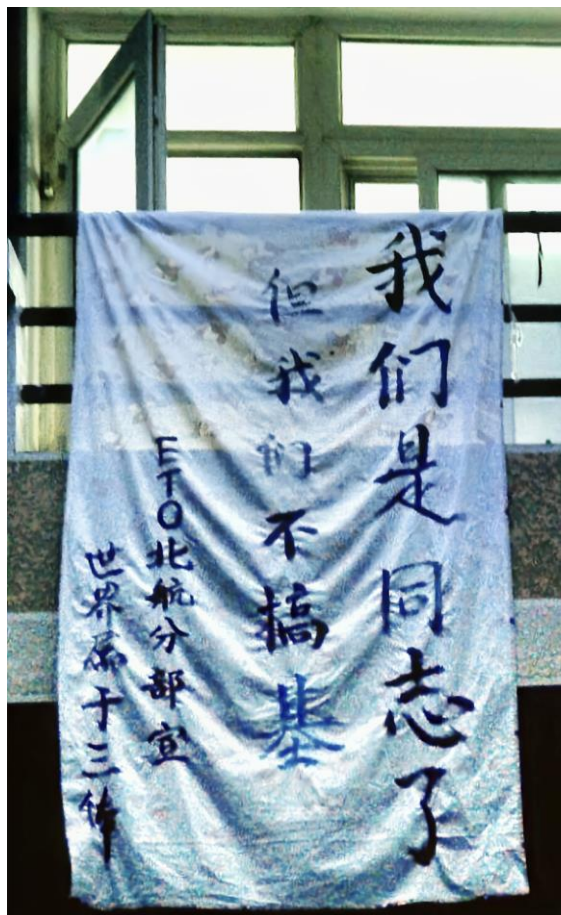 我们是同志了
但我们不搞基
ETO北航分部宣
世界属于三体